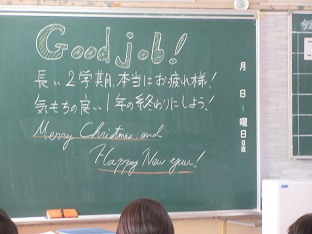 Good job!
長い2学期、本当にお疲れ様!
気もちの良い1年の終わりにしよう!
Merry Christmas and
Happy New year!
月
日
曜日
日直